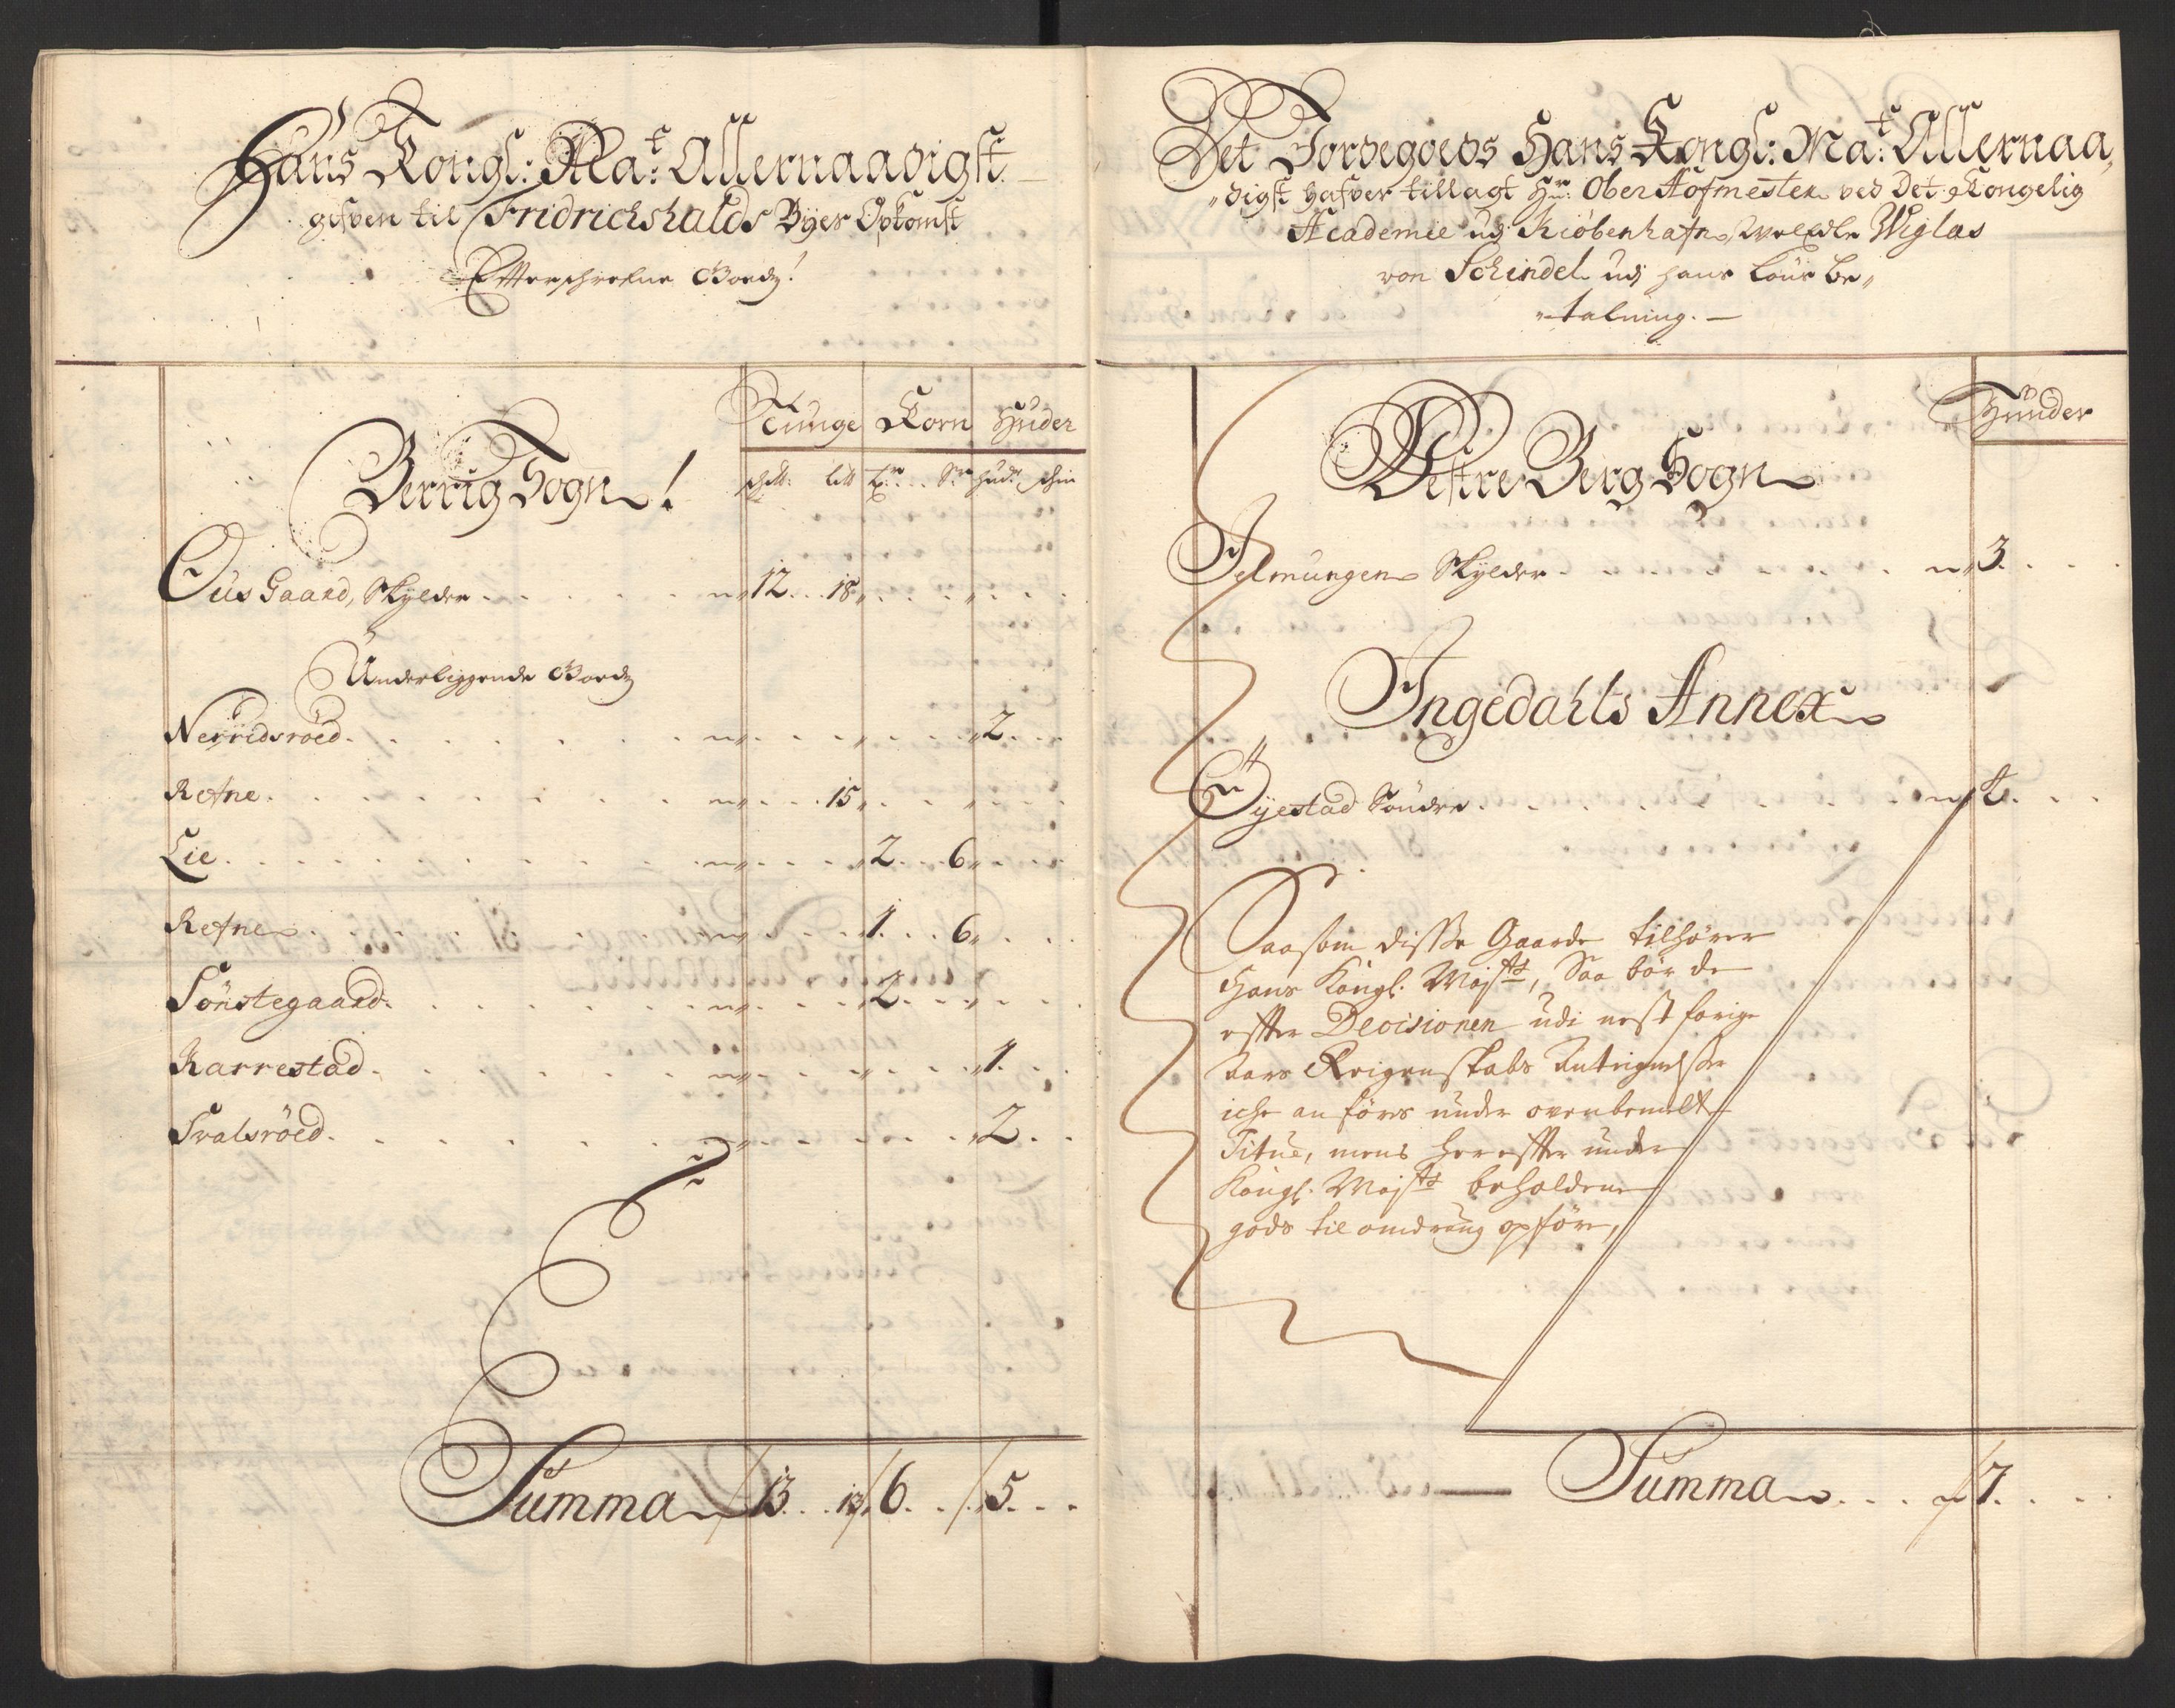 Hans Kongl: Ma:t Allernaadigst
gifven til Fridrichshalds Byes Opkomst
Efterschrefne Goedz!
Tunge Korn Huder
schll: lill Tr. Sr. Hudr schin
Berrig Sogn!
Ous Gaard, Skylder 12 18
Underliggende Goedz
Nerridsröed 2
Refne 15
Lie 2 6
Refne 1 6
Sönstegaard 2
Karrestad 1
Svalsröed 2
Summa 13 13 6 5
Det Jordegoeds Hans Kongl: Ma:t Allernaa
digst hafver tillagt Hr: Ober Hofmester ved Det Kongelig
Academie udj Kiöbenhafn, Welædle Wiglas
von Schindel udj hans Löns be
talning.
Hunder
Vestre Berg Sogn
Jelmungen Skylder 3
Ingedahls Annex
Öyestad Söndre 4
Saasom disse Gaarde tilhører
Hans Kongl: Majsts, Saa bör de
effter Decisionen udi nest forige
Aars Reigenskabs Antegnelsser
iche anföres under ovenbemelte
Titul, mens her effter under
Kongl: Majsts beholdene
gods til omdrag opföre,
Summa 7